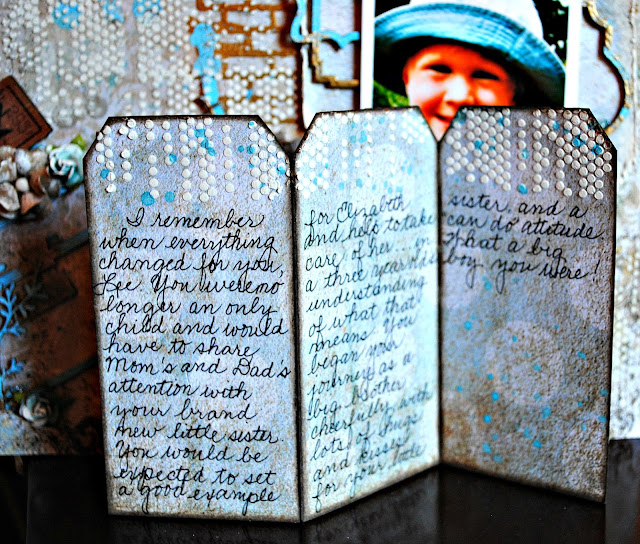 I remember
when everything
changed for you,
Lee. You were no
longer an only
child and would
have to share
Mom's and Dad's
attention with
your brand
new little sister.
You would be
expected to set
a good example
for Elizabeth
and help to take
care of her... in
a three year old's
understanding
of what that
means. You
began your
journey as a
big brother
cheerfully with
lots of hugs
and kisses
for your little
sister and a
can do attitude.
What a big
boy you were!